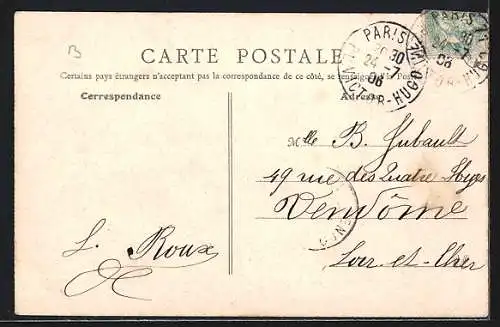 B
CARTE POSTALE
Certains pays étrangers n'acceptant pas la correspondance de ce côté, se renseigner à la Poste
Correspondance
Adresse
PARIS
30
24 -7
06
VICTOR-HUGO
PARIS
30
24 7
06
Mlle B. Jubault
49 rue des Quatre
Vendôme
Loir-et-Cher
L. Roux